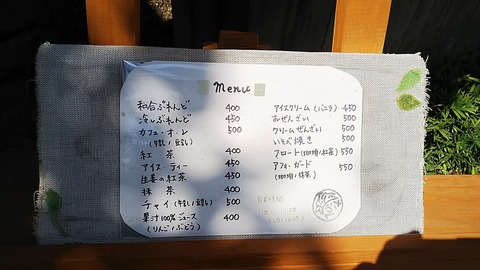 Menu
和合ぶれんど 400
冷しぶれんど 450
カフェ・オ・レ 500
(牛乳/豆乳)
紅茶 400
アイス・ティー 450
生姜の紅茶 450
抹茶 400
チャイ (牛乳/豆乳) 500
果汁100%ジュース 400
(りんご/ぶどう)
アイスクリーム (バニラ) 450
おぜんざい 500
クリームぜんざい 500
いそべ焼き 500
フロート (珈琲/紅茶) 550
アフォ・ガード 550
(珈琲/抹茶)